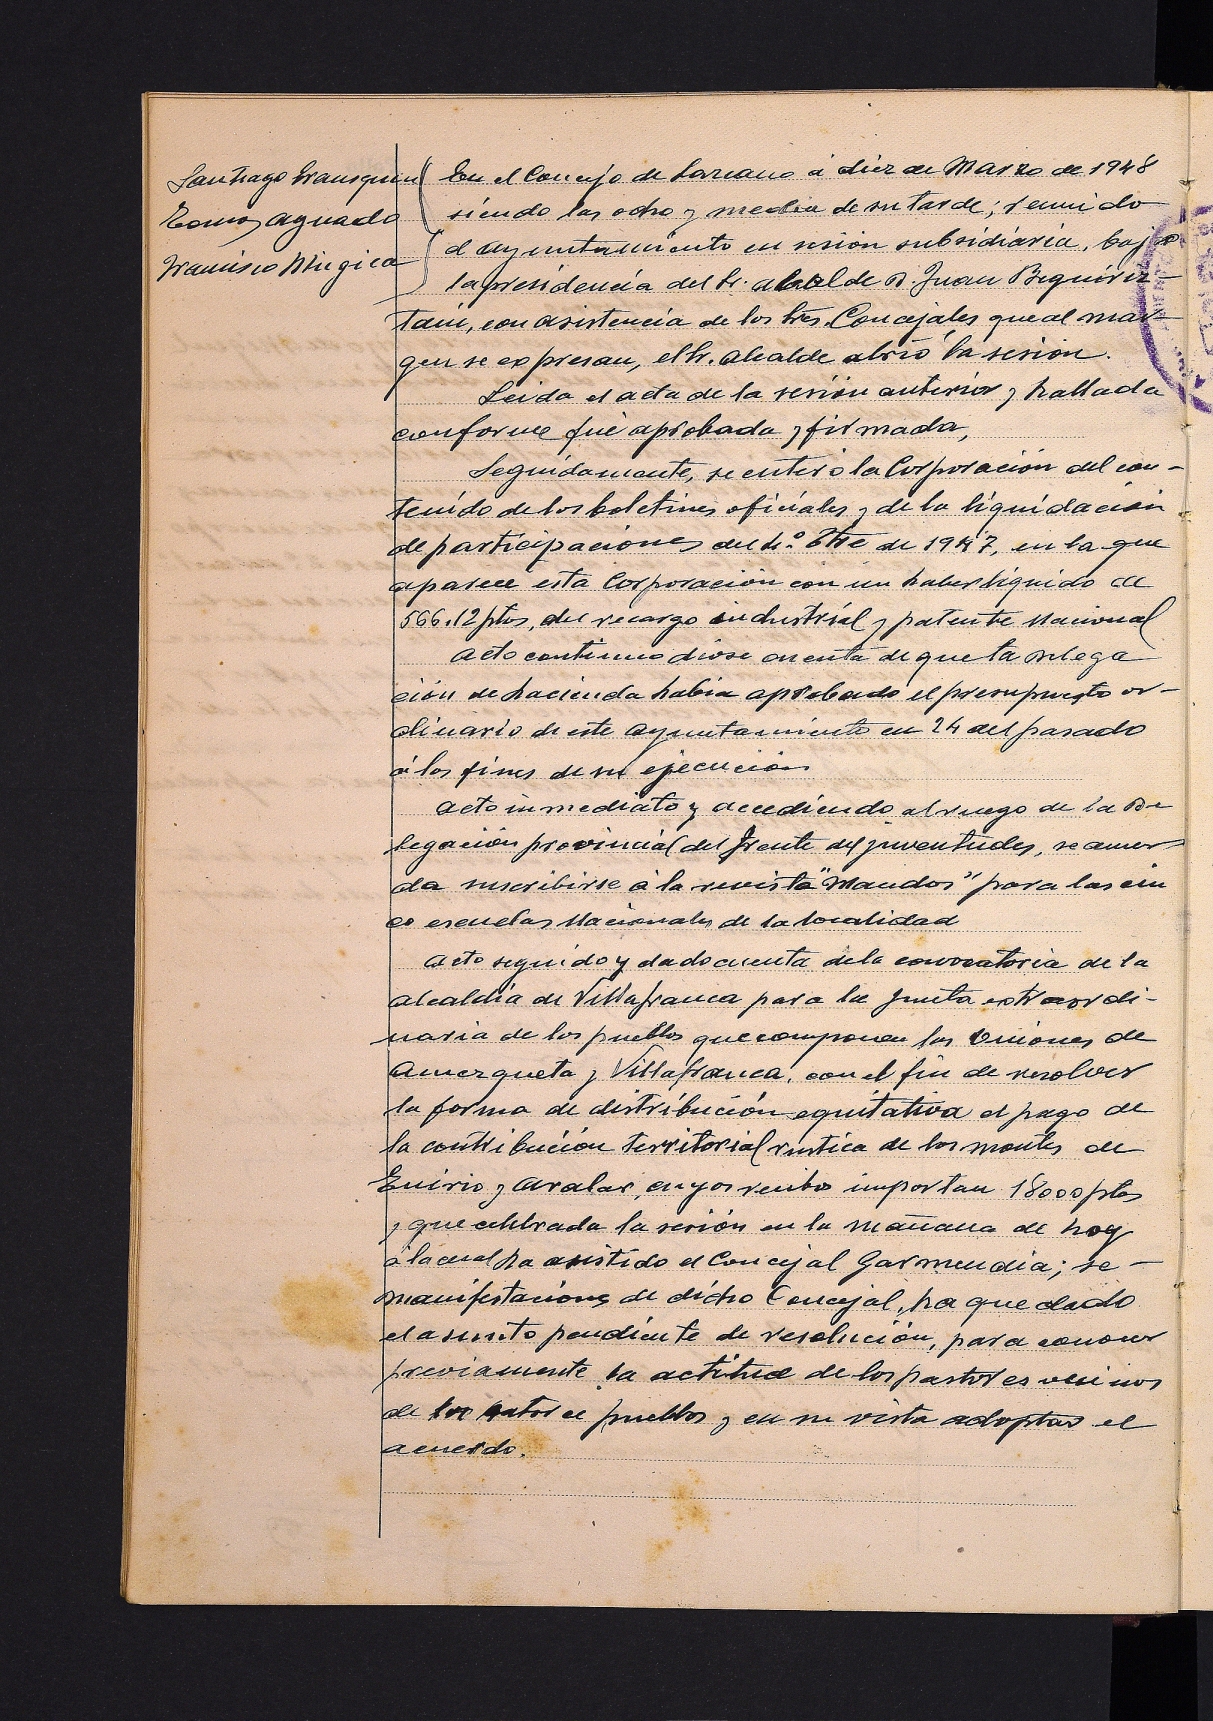 Santiago Irausquin
Tomas Aguado
Francisco Mugica
En el Concejo de Lazcano á diez de Marzo de 1948
siendo las ocho y media de su tarde; reunido
el ayuntamiento en sesión subsidiaria, bajo
la presidencia del Sr. alcalde D. Juan Beguiriz-
tain, con asistencia de los Sres. Concejales que al mar-
gen se expresan, el Sr. Alcalde abrió la sesión.
Leida el acta de la sesión anterior y hallada
conforme fué aprobada y firmada,
Seguidamente, se enteró la Corporación del con-
tenido de los boletines oficiales y de la liquidación
de participaciones del 4.º Tre de 1947, en la que
aparece esta Corporación con un haber liquido de
566.12 ptas, del recargo industrial y patente Nacional
Acto continuo diose cuenta de que la Delega
ción de hacienda habia aprobado el presupuesto or-
dinario de este Ayuntamiento en 24 del pasado
á los fines de su ejecución
Acto inmediato y accediendo al ruego de la De
legación provincial del Frente de juventudes, se acuer
da suscribirse á la revista "Mandos" para las cin
co escuelas Nacionales de la localidad
Acto seguido y dado cuenta de la convocatoria de la
alcaldia de Villafranca para la Junta extraordi-
naria de los pueblos que componen las Uniones de
Amezqueta y Villafranca, con el fin de resolver
la forma de distribución equitativa el pago de
la contribución territorial rustica de los montes de
Enirio y Aralar, cuyos recibos importan 18000 ptas
y que celebrada la sesión en la mañana de hoy
á la cual ha asistido el Concejal Garmendia; se-
manifestaciones de dicho Concejal, ha quedado
el asunto pendiente de resolución, para conocer
previamente la actitud de los pastores vecinos
de los catorce pueblos y en su vista adoptar el
acuerdo.